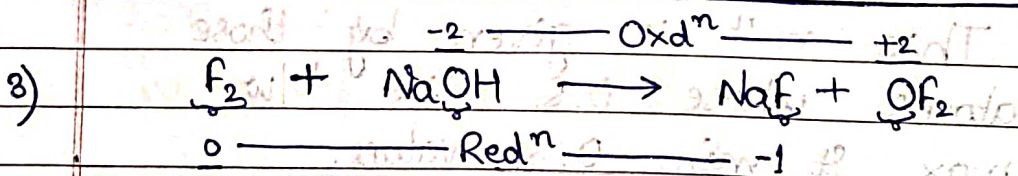 -2 Oxdⁿ +2
3) F₂ + NaOH → NaF + OF₂
0 Redⁿ -1